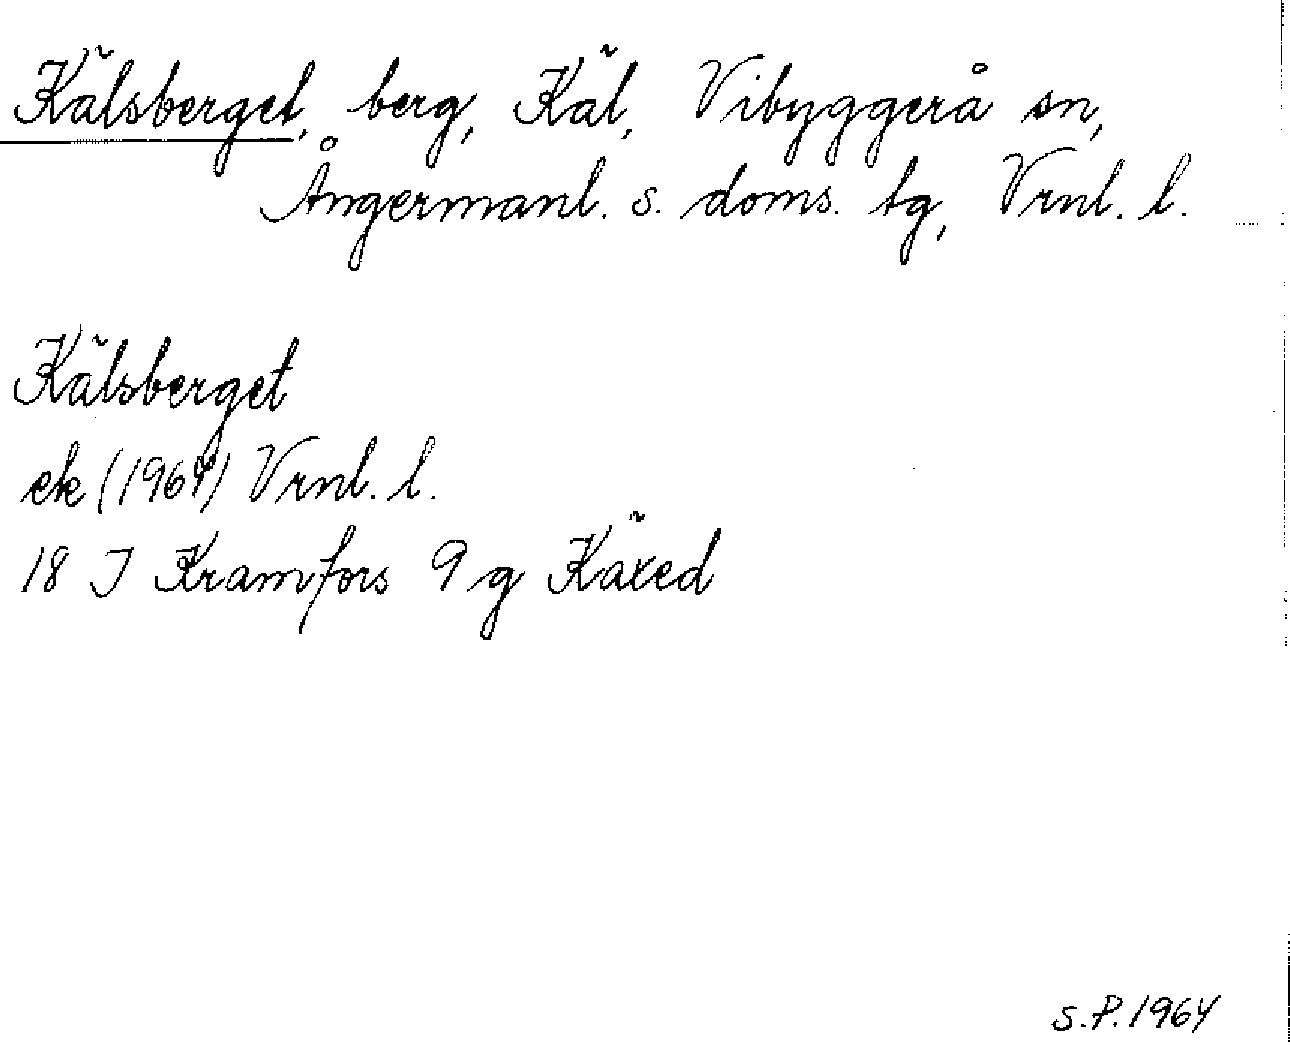 Kälsberget, berg, Käl, Vibyggerå sn,
Ångermanl. s. doms. tg, Vrnl. l.
Kälsberget
ek (1964) Vrnl. l.
18 J Kramfors 9 g Käxed
S.P. 1964